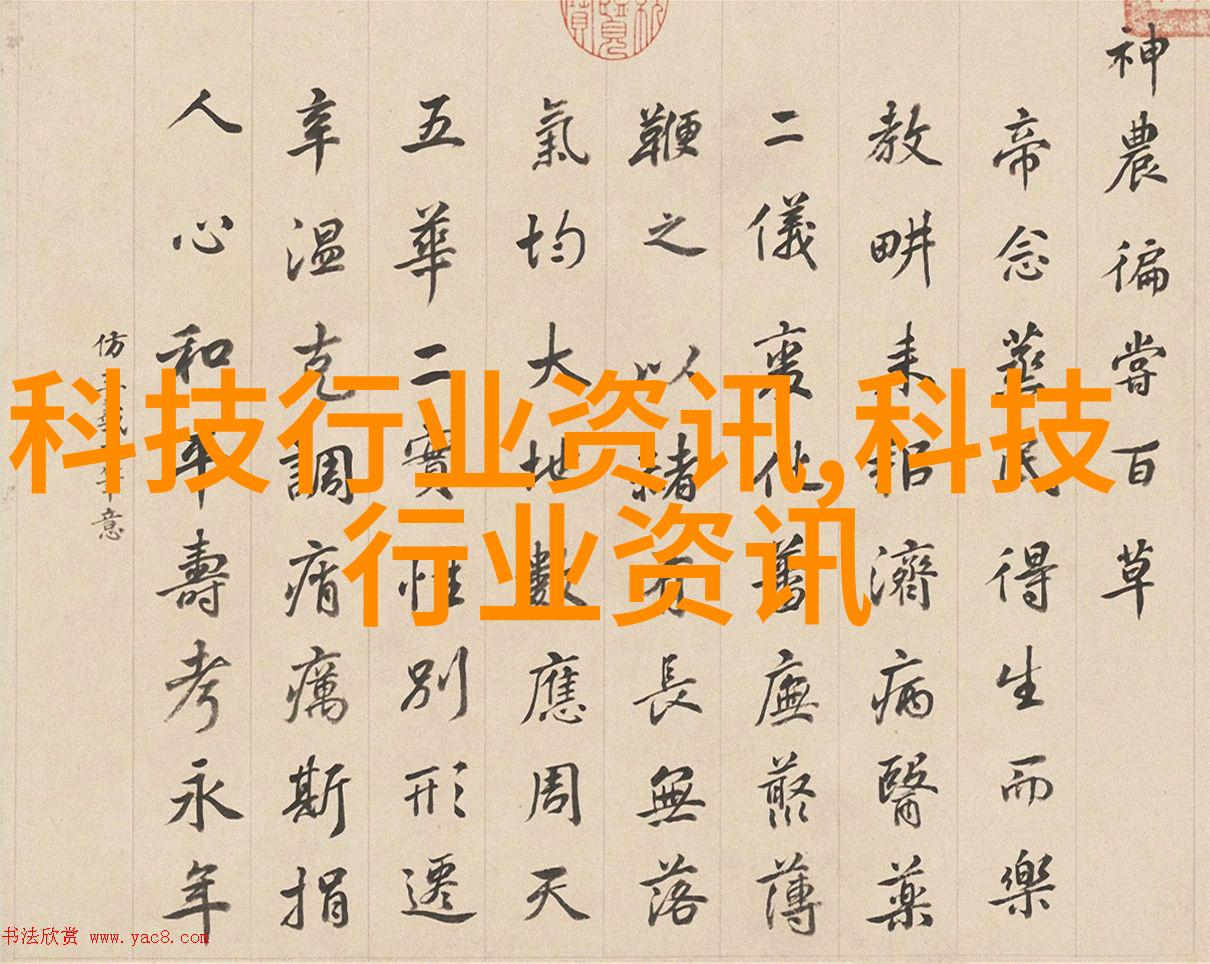 科技行业资讯,科技
行业资讯
神農徧嘗百草
帝念蒸民得生而樂
教畊耒耜濟病醫藥
二儀化廡叢薄
鞭之以有長無落
氣均大地數應周天
五華二實性別形遷
辛溫克調痟癘斯捐
人心和平壽考永年
仿意
书法欣赏 www.yac8.com